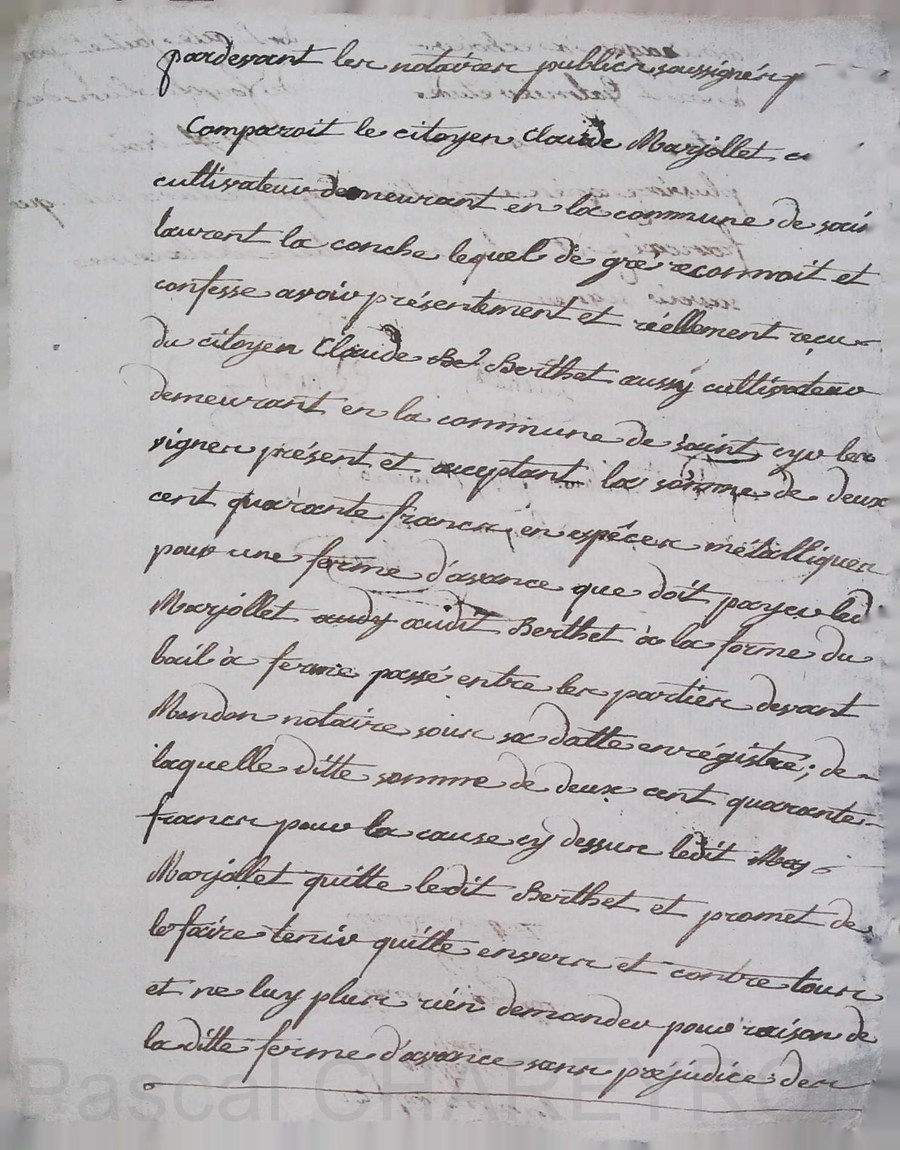 pardevant les notaires publics soussignés
Comparoit le citoyen Claude Marjollet
cultivateur demeurant en la commune de sain
laurent la conche lequel de gré reconnoit et
confesse avoir présentement et réellement reçu
du citoyen Claude Berthet aussy cultivateur
demeurant en la commune de saint cyr les
vignes présent et acceptant la somme de deux
cent quarante francs en espéces métalliques
pour une ferme d'avance que doit payer led
Marjollet audit Berthet à la forme du
bail à ferme passé entre les parties devant
Mondon notaire sous sa datte enrégistré; de
laquelle ditte somme de deux cent quarante
francs pour la cause cy dessus ledit Marj
Marjollet quitte ledit Berthet et promet de
le faire tenir quitte envers et contre tous
et ne luy plus rien demander pour raison de
la ditte ferme d'avance sans préjudice des
Pascal CHAREYRON